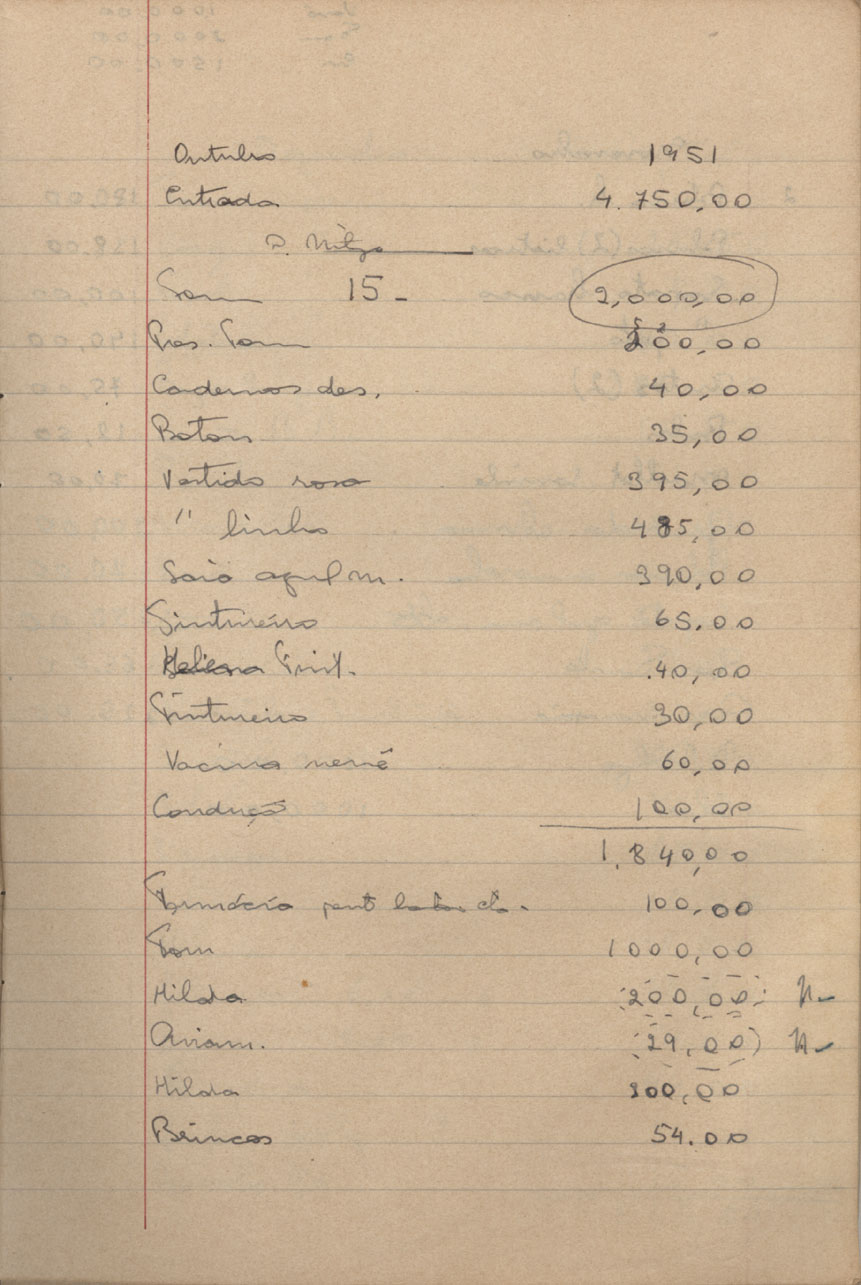 Outubro 1951
Entrada 4.750,00
D.
Tom 15- 2,000,00
Pres. Tom 200,00
Cadernos des. 40,00
Baton 35,00
Vestido rosa 395,00
" linho 485,00
Saia azul m. 390,00
Tintureiro 65.00
Helena 40,00
Tintureiro 30,00
Vacina nenê 60,00
Condução 100,00
1.840,00
Farmácia batom etc. 100,00
Tom 1000,00
Hilda 200,00 N-
Aviam. 29,00 N-
Hilda 300,00
Brincos 54.00